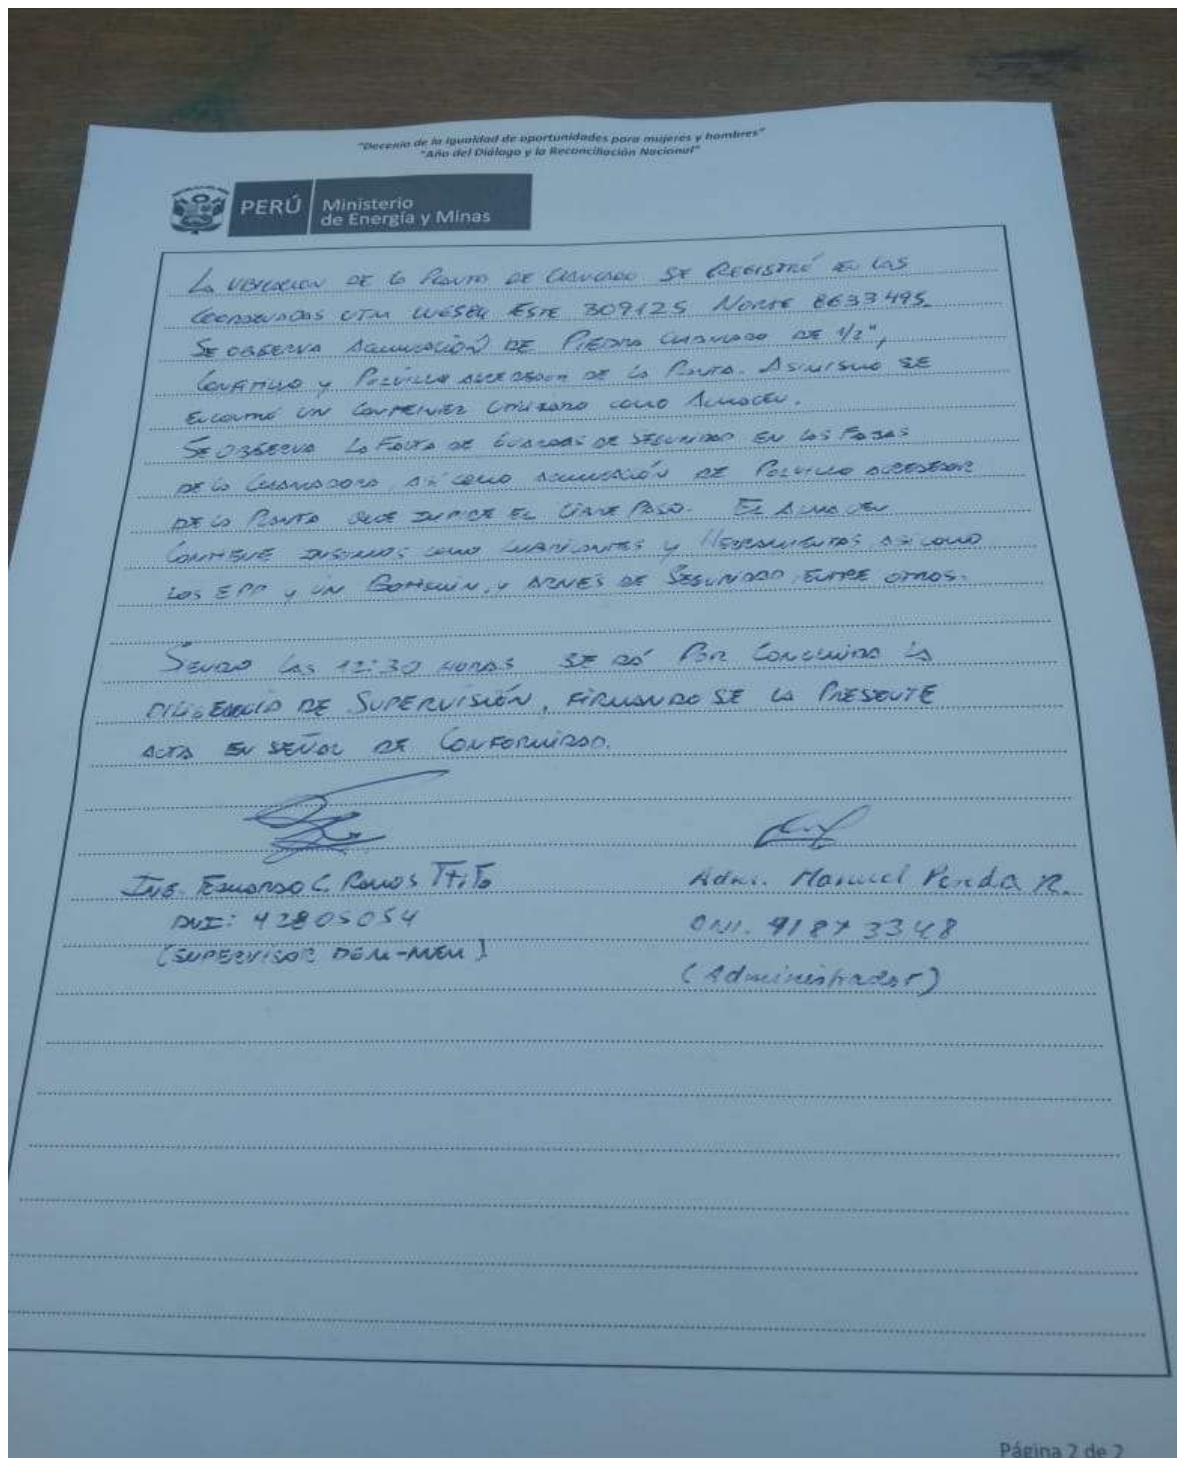 "Decenio de la igualdad de oportunidades para mujeres y hombres"
"Año del Diálogo y la Reconciliación Nacional"
PERÚ
Ministerio
de Energía y Minas
LA UBICACIÓN DE LA PLANTA DE CHANCADO SE REGISTRÓ EN LAS
COORDENADAS UTM WGS84 ESTE 309125 NORTE 8633495.
SE OBSERVA ACUMULACIÓN DE PIEDRA CHANCADO DE 1/2",
CONFITILLO Y POLVILLO ALREDEDOR DE LA PLANTA. ASIMISMO SE
ENCONTRÓ UN CONTENEDOR UTILIZADO COMO ALMACEN.
SE OBSERVA LA FALTA DE GUARDAS DE SEGURIDAD EN LAS FAJAS
DE LA CHANCADORA, ASÍ COMO ACUMULACIÓN DE POLVILLO ALREDEDOR
DE LA PLANTA QUE IMPIDE EL LIBRE PASO. EL ALMACEN
CONTIENE INSUMOS COMO LUBRICANTES Y HERRAMIENTAS ASI COMO
LOS EPP Y UN BOTIQUÍN, Y ARNÉS DE SEGURIDAD ENTRE OTROS.
SIENDO LAS 12:30 HORAS SE DÁ POR CONCLUIDA LA
DILIGENCIA DE SUPERVISIÓN, FIRMANDO SE LA PRESENTE
ACTA EN SEÑAL DE CONFORMIDAD.
ING. EDUARDO C. RAMOS TTITO
Adm. Manuel R.
DNI: 42805054
DNI. 91873348
(SUPERVISOR DGM-MEM)
(Administrador)
Página 2 de 2